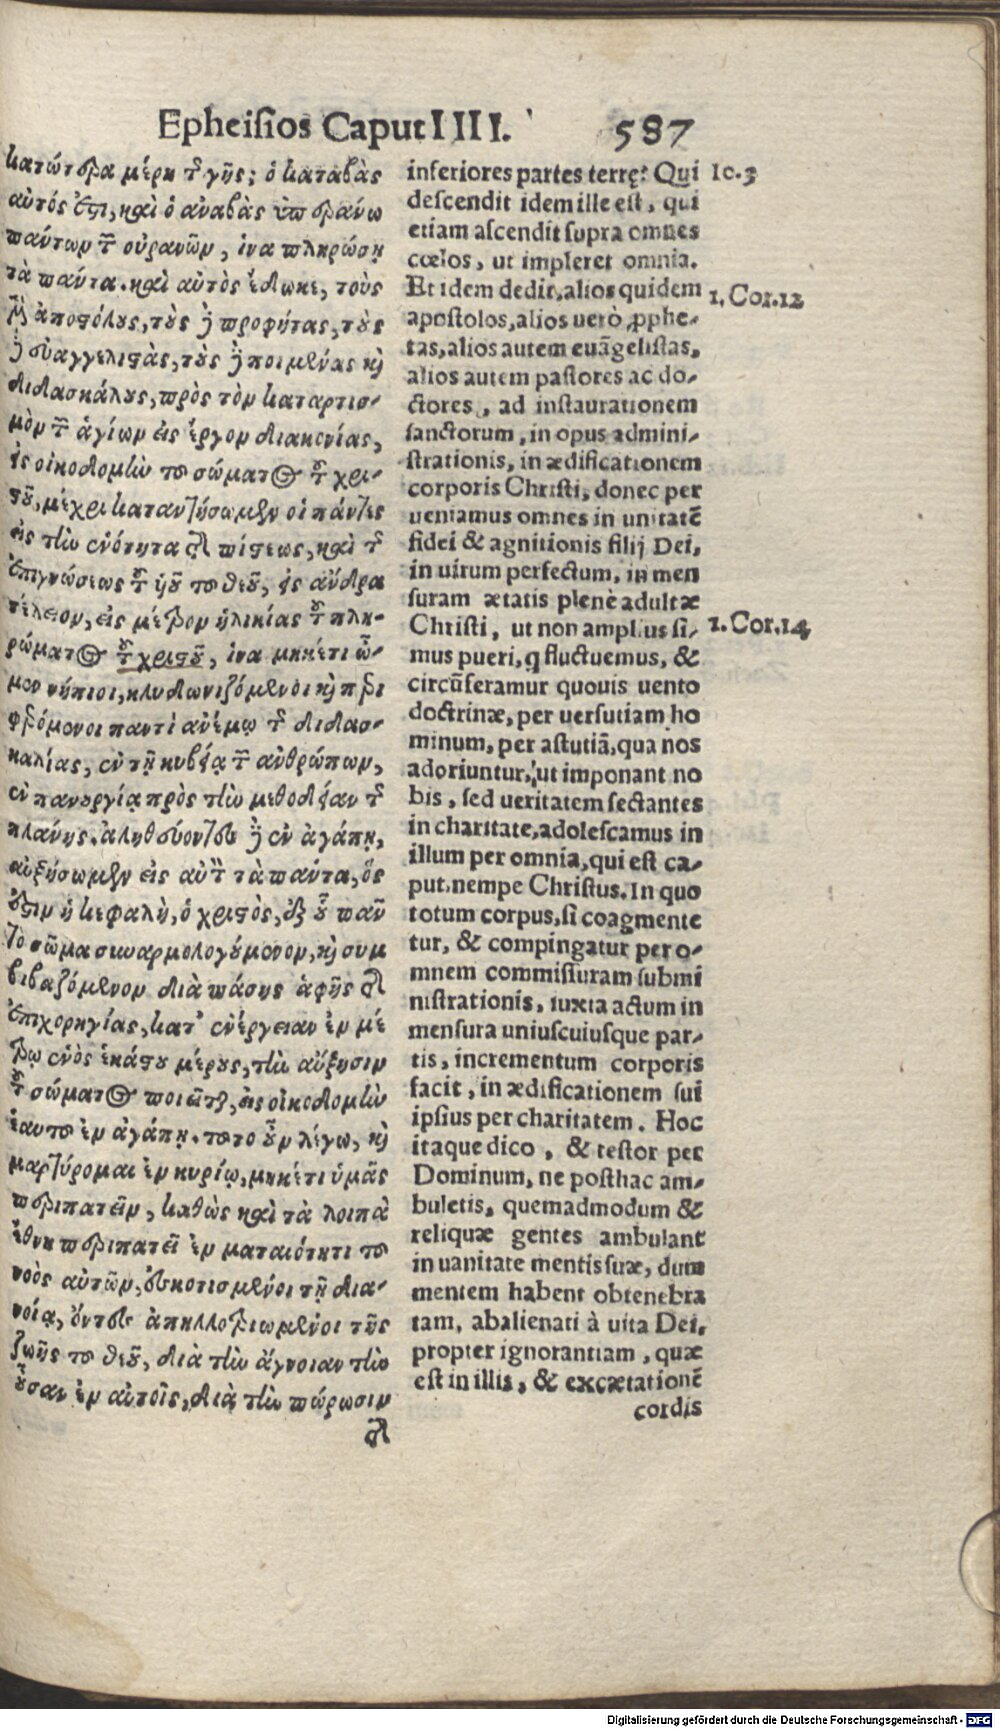 Epheisios Caput IIII. 587
κατώτερα μέρη τῆς γῆς; ὁ καταβὰς
αὐτός ἐστι, καὶ ὁ ἀναβὰς ὑπεράνω
πάντων τῶν οὐρανῶν, ἱνα πληρώσῃ
τὰ πάντα. καὶ αὐτὸς ἔδωκε, τοὺς
μὲν ἀποστόλους, τοὺς δὲ προφήτας, τοὺς
δὲ εὐαγγελιστὰς, τοὺς δὲ ποιμένας καὶ
διδασκάλους, πρὸς τὸν καταρτισ-
μὸν τῶν ἁγίων εἰς ἔργον διακονίας,
εἰς οἰκοδομὴν τοῦ σώματος τοῦ χρι-
στοῦ, μέχρι καταντήσωμεν οἱ πάντες
εἰς τὴν ἑνότητα τῆς πίστεως, καὶ τῆς
ἐπιγνώσεως τοῦ ὑοῦ τοῦ θεοῦ, εἰς ἄνδρα
τέλειον, εἰς μέτρον ἡλικίας τοῦ πλη-
ρώματος τοῦ χριστοῦ, ἱνα μηκέτι ὦ-
μεν νήπιοι, κλυδωνιζόμενοι καὶ περι
φερόμενοι παντὶ ἀνέμῳ τῆς διδασ-
καλίας, ἐν τῇ κυβείᾳ τῶν ἀνθρώπων,
ἐν πανουργίᾳ πρὸς τὴν μεθοδείαν τῆς
πλάνης. ἀληθεύοντες δὲ ἐν ἀγάπῃ,
αὐξήσωμεν εἰς αὐτὸν τὰ πάντα, ὅς
ἐστιν ἡ κεφαλὴ, ὁ χριστὸς, ἐξ οὗ πᾶν
τὸ σῶμα συναρμολογούμενον, καὶ συμ
βιβαζόμενον διὰ πάσης ἁφῆς τῆς
ἐπιχορηγίας, κατ' ἐνέργειαν ἐν μέ
τρῳ ἑνὸς ἑκάστου μέρους, τὴν αὔξησιν
τοῦ σώματος ποιεῖται, εἰς οἰκοδομὴν
ἑαυτοῦ ἐν ἀγάπῃ. τοῦτο οὖν λέγω, καὶ
μαρτύρομαι ἐν κυρίῳ, μηκέτι ὑμᾶς
περιπατεῖν, καθὼς καὶ τὰ λοιπὰ
ἔθνη περιπατεῖ ἐν ματαιότητι τοῦ
νοὸς αὐτῶν, ἐσκοτισμένοι τῇ δια-
νοίᾳ, ὄντες ἀπηλλοτριωμένοι τῆς
ζωῆς τοῦ θεοῦ, διὰ τὴν ἄγνοιαν τὴν
οὖσαν ἐν αὐτοῖς, διὰ τὴν πώρωσιν
τῆς
inferiores partes terrę? Qui
descendit idem ille est, qui
etiam ascendit supra omnes
cœlos, ut impleret omnia.
Et idem dedit, alios quidem
apostolos, alios uerò ꝓphe-
tas, alios autem euãgelistas,
alios autem pastores ac do-
ctores, ad instaurationem
sanctorum, in opus admini-
strationis, in ædificationem
corporis Christi, donec per
ueniamus omnes in unitatẽ
fidei & agnitionis filij Dei,
in uirum perfectum, in men
suram ætatis plenè adultæ
Christi, ut non amplius si-
mus pueri, q fluctuemus, &
circũferamur quouis uento
doctrinæ, per uersutiam ho
minum, per astutiã, qua nos
adoriuntur, ut imponant no
bis, sed ueritatem sectantes
in charitate, adolescamus in
illum per omnia, qui est ca-
put, nempe Christus. In quo
totum corpus, si coagmente
tur, & compingatur per o-
mnem commissuram submi
nistrationis, iuxta actum in
mensura uniuscuiusque par-
tis, incrementum corporis
facit, in ædificationem sui
ipsius per charitatem. Hoc
itaque dico, & testor per
Dominum, ne posthac am-
buletis, quemadmodum &
reliquæ gentes ambulant
in uanitate mentis suæ, dum
mentem habent obtenebra
tam, abalienati à uita Dei,
propter ignorantiam, quæ
est in illis, & excætationẽ
cordis
Io.3
1. Cor.12
1. Cor.14
Digitalisierung gefördert durch die Deutsche Forschungsgemeinschaft - DFG